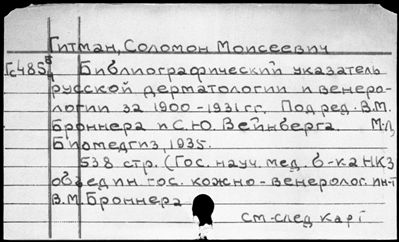 Гитман, Соломон Моисеевич
Гс485
Библиографический указатель
русской дерматологии и венеро-
логии за 1900-1931 гг. Под ред. В.М.
Броннера и С.Ю. Вейнберга. М-Л,
Биомедгиз, 1935.
538 стр. (Гос. науч. мед. б-ка НКЗ
объедин гос. кожно-венеролог. ин-т
В.М. Броннера
См-след карт